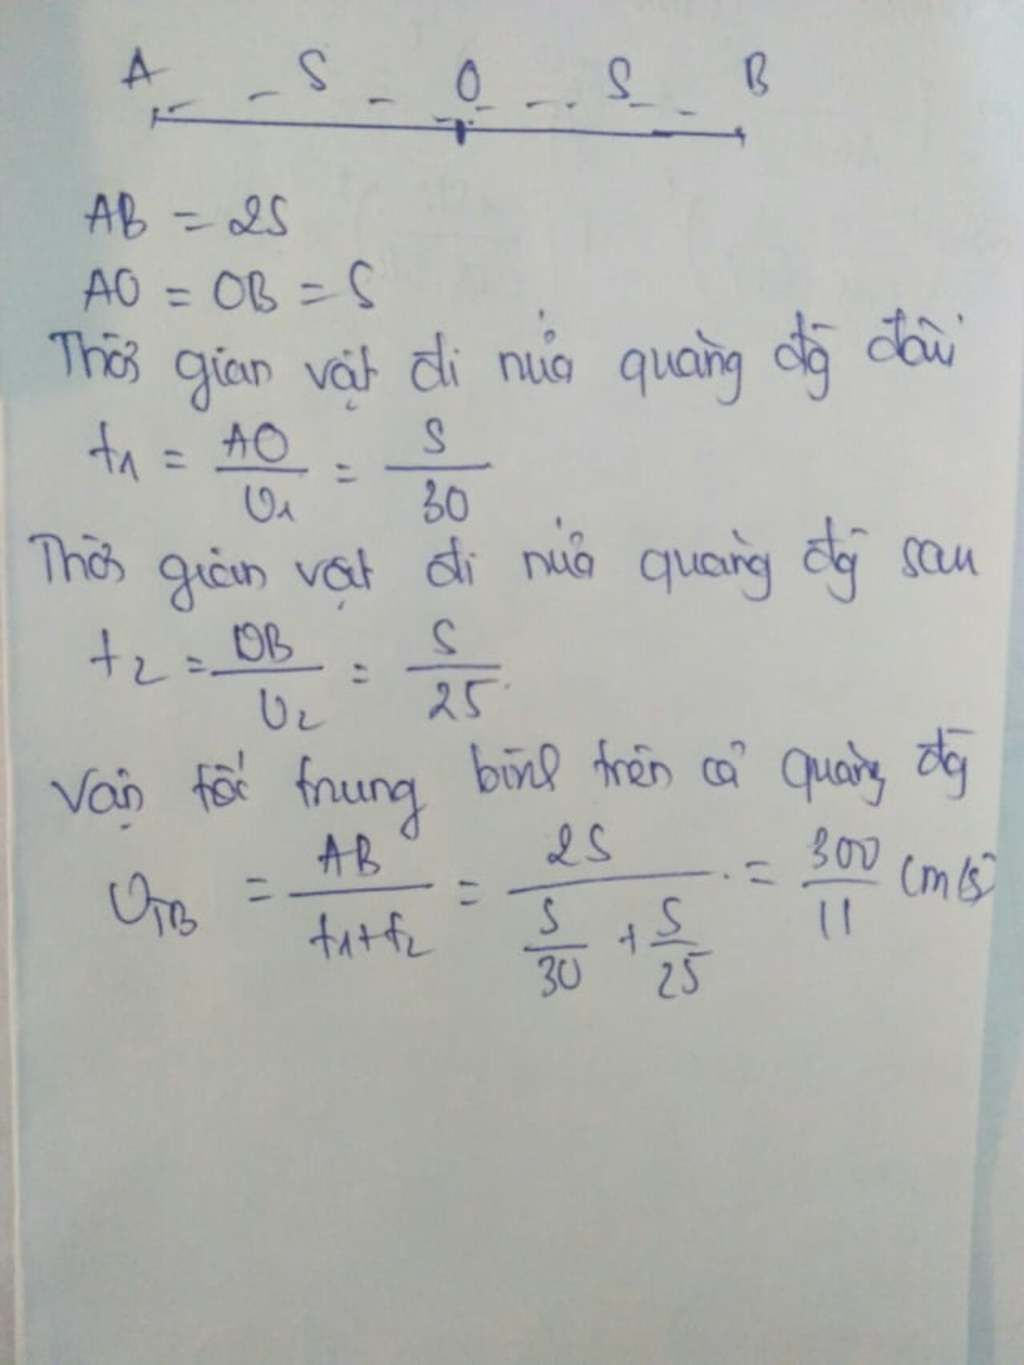 A S O S B
AB = 2S
AO = OB = S
Thời gian vật đi nửa quãng đg̃ đầu
t1 = AO/v1 = S/30
Thời gian vật đi nửa quãng đg̃ sau
t2 = OB/v2 = S/25
Vận tốc trung bình trên cả quãng đg̃
vTB = AB/(t1+t2) = 2S/(S/30 + S/25) = 300/11 (m/s)